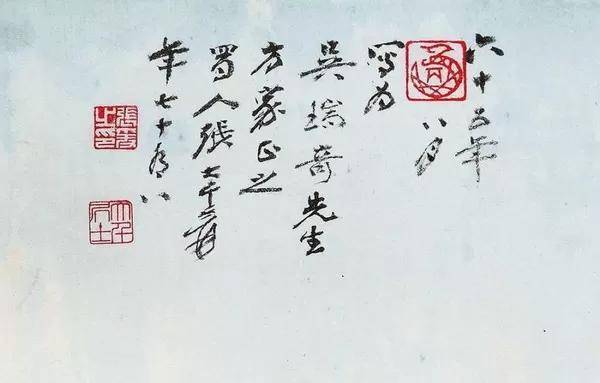 六十五年
八月
寫為
吳瑞奇先生
方家正之
蜀人張大千爰
年七十有八
張爰之印
大千居士